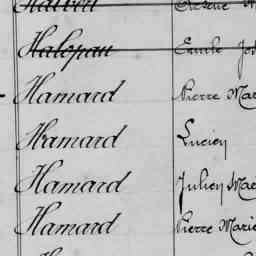 Halopau Emile
Hamard Pierre
Hamard Lucien
Hamard Julien
Hamard Pierre Marie